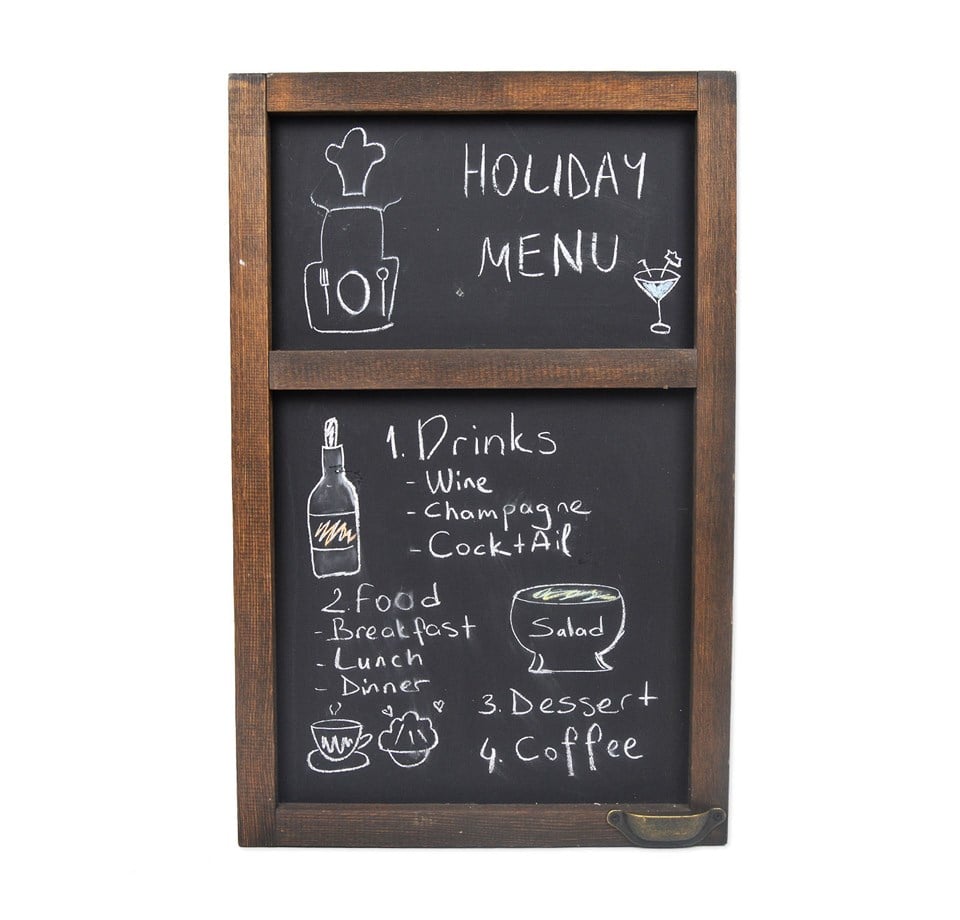 HOLIDAY
MENU
1. Drinks
- Wine
- Champagne
- CocktAil
2. Food
- Breakfast
- Lunch
- Dinner
Salad
3. Dessert
4. Coffee